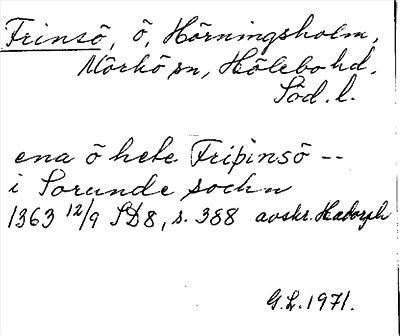 Frinsö, ö, Hörningsholm,
Mörkö sn, Hölebo hd.
Söd. l.
ena ö hete Friþinsö --
i Sorunde sockn
1363 12/9 SD8, s. 388 avskr. Hadorph
G.L. 1971.